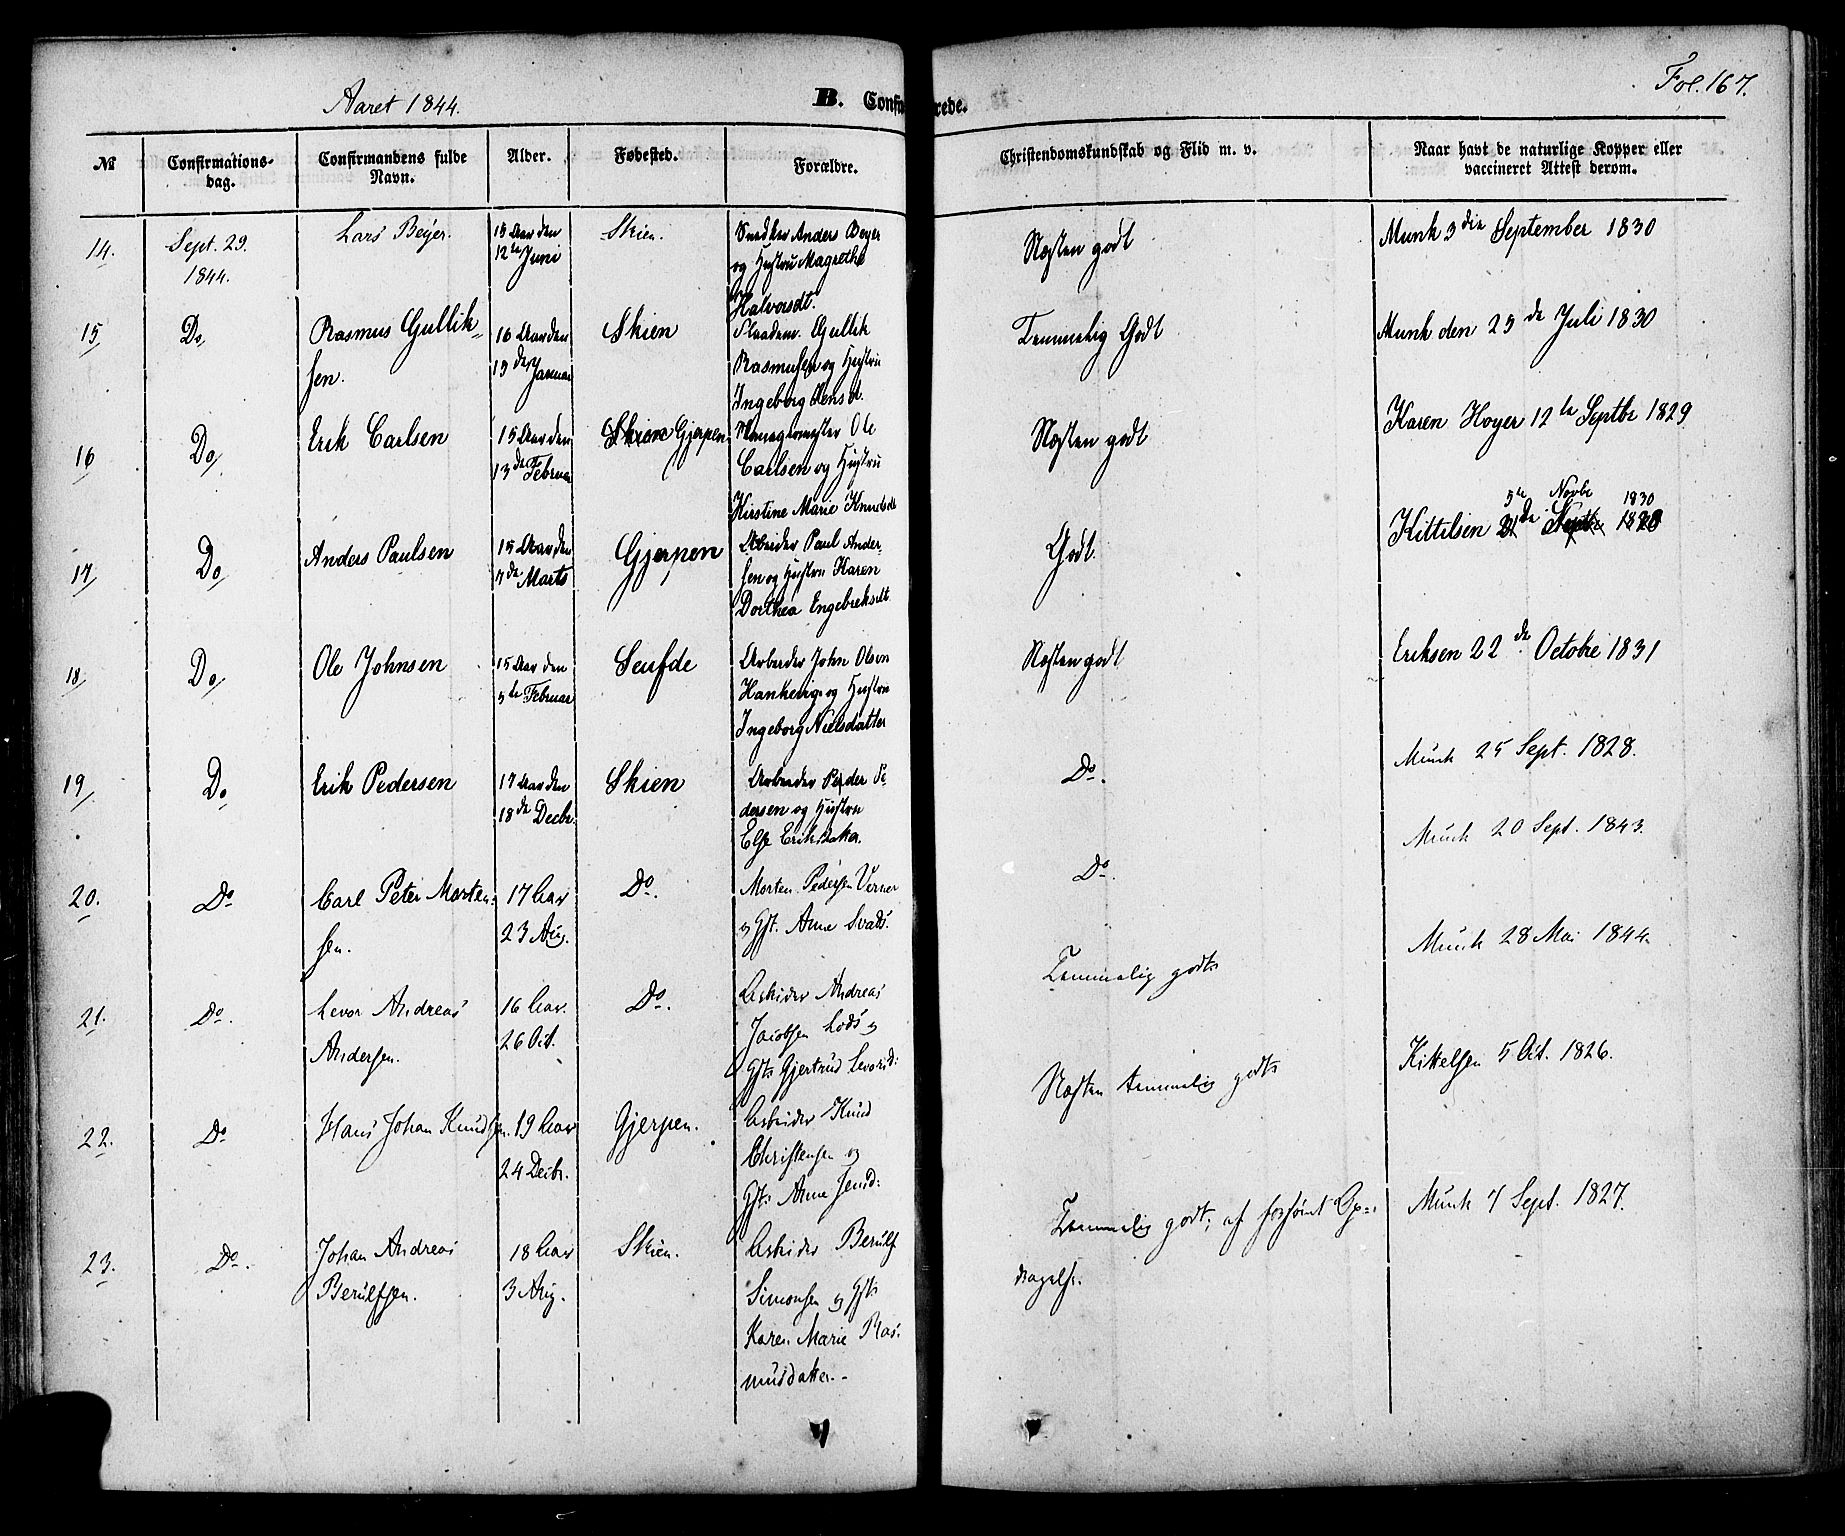 Fol. 167.
Aaret 1844.
B. Confirmerede.
№
Confirmations-
dag.
Confirmandens fulde
Navn.
Alder.
Fødested.
Forældre.
Christendomskundskab og Flid m. v.
Naar havt de naturlige Kopper eller
vaccineret Attest derom.
14.
Sept. 29.
1844.
Lars Beyer.
15 Aar den
12te Juni
Skien.
Snedker Anders Beyer
og Hustru Magrethe
Halvorsdt.
Næsten godt
Munk 3die September 1830
15/
Do/
Rasmus Gullik-
sen.
16 Aar den
13de Januar
Skien
Gullik
Rasmussen og Hustru
Ingeborg
Temmelig Godt
Munk den 23de Juli 1830
16
Do/
Erik Carlsen
15 Aar den
13de Februar
Skien Gjerpen
Ole
Carlsen og Hustru
Kirstine Marie Knudsdt
Næsten godt
Karen Hoyer 12te Septbr 1829
17/
Do/
Anders Paulsen
15 Aar den
7de Marts
Gjerpen
Arbeider Paul Ander-
sen og Hustru Karen
Dorthea Engebretsdt
Godt
5te Novbr 1830
Kittilsen
18/
Do/
Ole Johnsen
15 Aar den
5te Februar
Seufde
Arbeider John Olsen
Hankevig og Hustru
Ingeborg Nielsdatter
Næsten godt
Eriksen 22de Octobre 1831
19/
Do/
Erik Pedersen
17 Aar den
18de Decbr.
Skien
Arbeider Peder Pe
dersen og Hustru
Else Eriksdatter.
Do.
Munk 25 Sept. 1828.
20.
Do
Carl Peter Morten-
sen.
17 Aar
23 Aug.
Do.
Morten Pedersen Verner
og Hst. Anne
Do.
Munk 20 Sept. 1843.
21.
Do.
Levor Andreas
Andersen.
16 Aar
26 Oct.
Do.
Arbeider Andreas
Jacobsen Lods og
Hst. Gjertrud Levorsd:
Temmelig godt
Munk 28 Mai 1844.
22.
Do
Hans Johan Knudsen.
19 Aar
24 Decbr.
Gjerpen.
Arbeider Knud
Christensen og
Hst. Anne Jensd:
Næsten temmelig godt
Kittelsen 5 Oct. 1826.
23.
Do.
Johan Andreas
Berulfsen.
18 Aar
3 Aug.
Skien.
Arbeider Berulf
Simonsen og Hst.
Karen Marie Ras-
musdatter.-
Temmelig godt; af Op-
dragelse.
Munk 7 Sept. 1827.